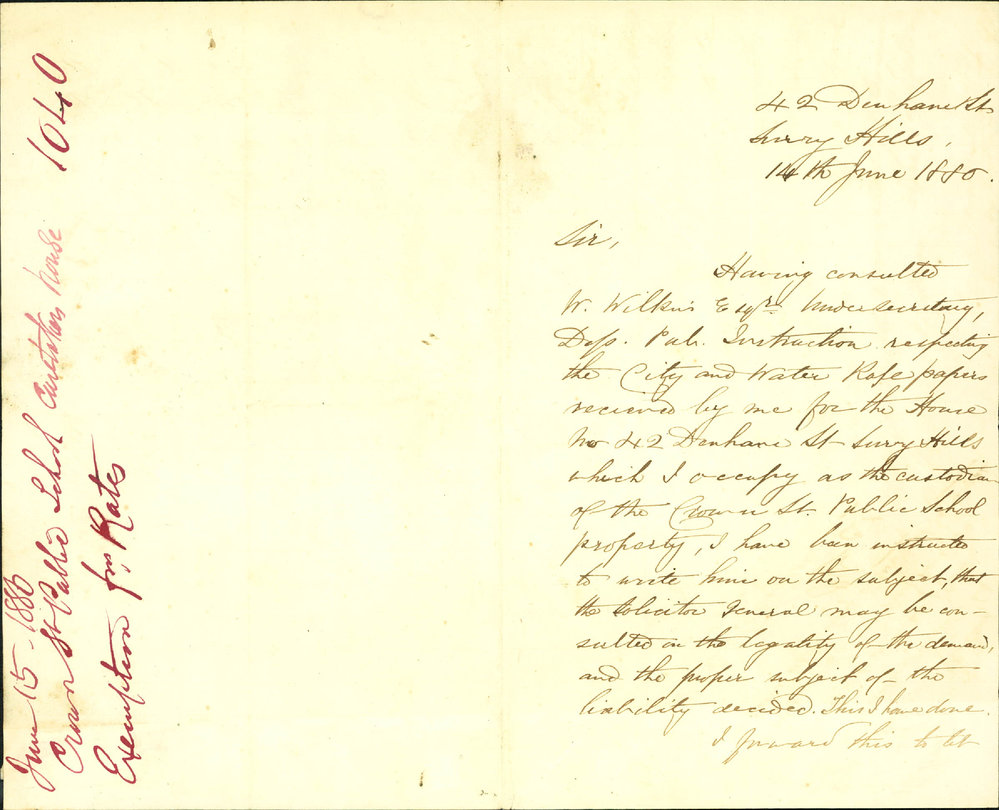 June 15 - 1880
Crown St Public School Caretakers house 1040
Exemption fm Rates
42 Denham St
Surry Hills,
14th June 1880.
Sir,
Having consulted
W. Wilkins Esqre. Undersecretary,
Dep. Pub. Instruction respecting
the City and Water Rate papers
recieved by me for the House
No 42 Denham St Surry Hills
which I occupy as the custodian
of the Crown St Public School
property, I have been instructed
to write him on the subject, that
the Solicitor General may be con-
sulted on the legality of the demand,
and the proper subject of the
liability decided. This I have done.
I forward this to let